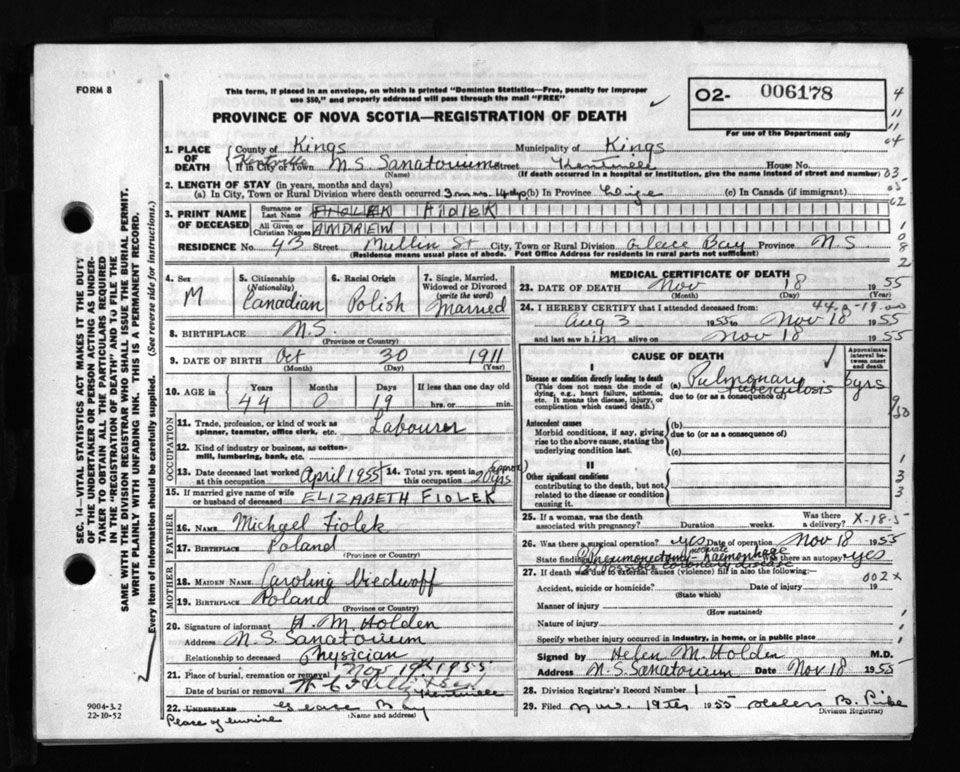 FORM 8
This form, if placed in an envelope, on which is printed "Dominion Statistics—Free, penalty for improper
use $50," and properly addressed will pass through the mail "FREE"
PROVINCE OF NOVA SCOTIA—REGISTRATION OF DEATH
02- 006178
For use of the Department only
1. PLACE OF DEATH
County of Kings Municipality of Kings
If in City or Town Kentville N.S. Sanatorium Street Kentville House No.
(Name) (If death occurred in a hospital or institution, give the name instead of street and number)
2. LENGTH OF STAY (in years, months and days)
(a) In City, Town or Rural Division where death occurred 3 mos. 14 dys (b) In Province Life (c) In Canada (if immigrant)
3. PRINT NAME OF DECEASED
Surname or Last Name FIOLEK
All Given or Christian Names ANDREW
RESIDENCE No. 43 Street Mullin St City, Town or Rural Division Glace Bay Province N.S.
(Residence means usual place of abode. Post Office Address for residents in rural parts not sufficient)
4. Sex M
5. Citizenship (Nationality) Canadian
6. Racial Origin Polish
7. Single, Married, Widowed or Divorced (write the word) Married
8. BIRTHPLACE N.S.
(Province or Country)
9. DATE OF BIRTH Oct 30 1911
(Month) (Day) (Year)
10. AGE in Years Months Days If less than one day old
44 0 19 hrs. or min.
OCCUPATION
11. Trade, profession, or kind of work as spinner, teamster, office clerk, etc. Labourer
12. Kind of industry or business, as cotton-mill, lumbering, bank, etc.
13. Date deceased last worked at this occupation April 1955
14. Total yrs. spent in this occupation 20 yrs (approx)
15. If married give name of wife or husband of deceased ELIZABETH FIOLEK
FATHER
16. NAME Michael Fiolek
17. BIRTHPLACE Poland
(Province or Country)
MOTHER
18. MAIDEN NAME Caroline
19. BIRTHPLACE Poland
(Province or Country)
20. Signature of informant H. M. Holden
Address N.S. Sanatorium
Relationship to deceased Physician
21. Place of burial, cremation or removal Nov 19th 1955
Date of burial or removal Kentville
22. UNDERTAKER Glace Bay
(Name and address)
Place of burial
9004-3.2
22-10-52
MEDICAL CERTIFICATE OF DEATH
23. DATE OF DEATH Nov 18 1955
(Month) (Day) (Year)
24. I HEREBY CERTIFY that I attended deceased from:
Aug 3 1955 to Nov 18 1955
and last saw him alive on Nov 18 1955
CAUSE OF DEATH
Approximate interval between onset and death
I
Disease or condition directly leading to death
(This does not mean the mode of dying, e.g., heart failure, asthenia, etc. It means the disease, injury, or complication which caused death.)
(a) Pulmonary tuberculosis
due to (or as a consequence of)
Antecedent causes
Morbid conditions, if any, giving rise to the above cause, stating the underlying condition last.
(b)
due to (or as a consequence of)
(c)
II
Other significant conditions
contributing to the death, but not related to the disease or condition causing it.
25. If a woman, was the death associated with pregnancy? Duration weeks. Was there a delivery?
26. Was there a surgical operation? yes Date of operation Nov 18 1955
State findings Pneumonectomy - moderate haemorrhage Was there an autopsy? yes
coronary disease
27. If death was due to external causes (violence) fill in also the following:—
002 x
Accident, suicide or homicide? Date of injury 19
(State which)
Manner of injury
(How sustained)
Nature of injury
Specify whether injury occurred in industry, in home, or in public place
Signed by Helen M. Holden M.D.
Address N.S. Sanatorium Date Nov 18 1955
28. Division Registrar's Record Number 1
29. Filed Nov. 19th 1955 Helen B.
Division Registrar)
SEC. 14—VITAL STATISTICS ACT MAKES IT THE DUTY
OF THE UNDERTAKER OR PERSON ACTING AS UNDER-
TAKER TO OBTAIN ALL THE PARTICULARS REQUIRED
IN THE "REGISTRATION OF DEATH" AND TO FILE THE
SAME WITH THE DIVISION REGISTRAR WHO SHALL ISSUE THE BURIAL PERMIT.
WRITE PLAINLY WITH UNFADING INK. THIS IS A PERMANENT RECORD.
Every item of information should be carefully supplied. (See reverse side for instructions.)